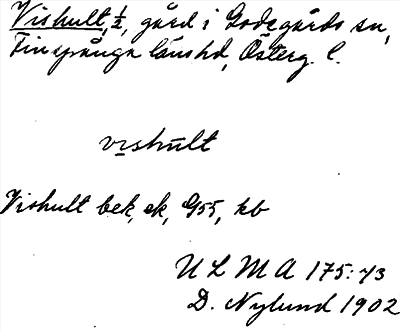 Vishult, ½, gård i Godegårds sn,
Finspånga länshd, Österg. l.
vıshu̅lt
Vishult bek, ek, G55, kb
U L M A 175:43
D. Nylund 1902